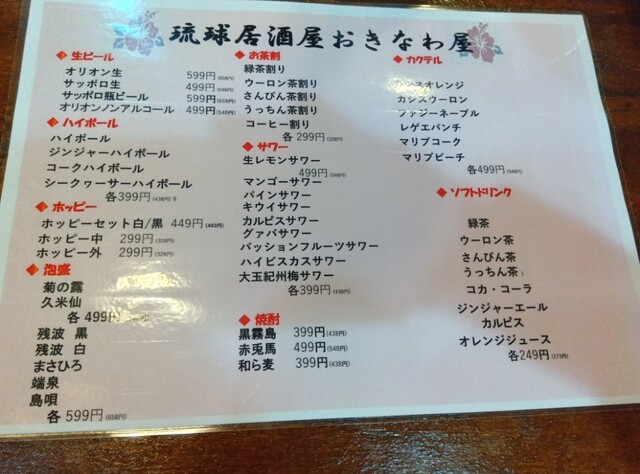 琉球居酒屋おきなわ屋
生ビール
オリオン生 599円(658円)
サッポロ生 499円(548円)
サッポロ瓶ビール 599円(658円)
オリオンノンアルコール 499円(548円)
ハイボール
ハイボール
ジンジャーハイボール
コークハイボール
シークヮーサーハイボール
各399円(438円)9
ホッピー
ホッピーセット白/黒 449円(493円)
ホッピー中 299円(328円)
ホッピー外 299円(328円)
泡盛
菊の露
久米仙
各 499円
残波 黒
残波 白
まさひろ
端泉
島唄
各 599円(658円)
お茶割
緑茶割り
ウーロン茶割り
さんぴん茶割り
うっちん茶割り
コーヒー割り
各 299円(328円)
サワー
生レモンサワー
499円(548円)
マンゴーサワー
パインサワー
キウイサワー
カルピスサワー
グァバサワー
パッションフルーツサワー
ハイビスカスサワー
大玉紀州梅サワー
各399円(438円)
焼酎
黒霧島 399円(438円)
赤兎馬 499円(548円)
和ら麦 399円(438円)
カクテル
オレンジ
カシスウーロン
ファジーネーブル
レゲエパンチ
マリブコーク
マリブピーチ
各499円(548円)
ソフトドリンク
緑茶
ウーロン茶
さんぴん茶
うっちん茶
コカ・コーラ
ジンジャーエール
カルピス
オレンジジュース
各249円(273円)